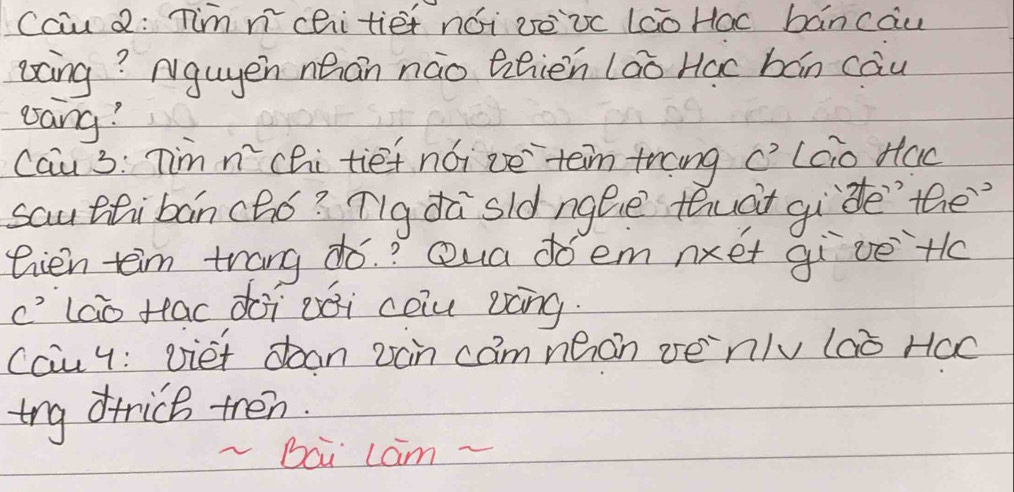 Câu 2: Tìm n~ chi tiết nói về vc lão Hạc bán cậu
vàng? Nguyên nhân nào khiến lão Hạc bán cậu
vàng?
Câu 3: Tìm n~ chi tiết nói về tâm trạng c² lão Hạc
sau khi bán chó? T/g đã sd nghệ thuật gì để thể
hiện tâm trạng đó? Qua đó em nxét gì về t/c
c² lão Hạc đối với cậu vàng.
Câu 4: Viết đoạn văn cảm nhận về n/v lão Hạc
trg đtrích trên.
~ Bài làm ~